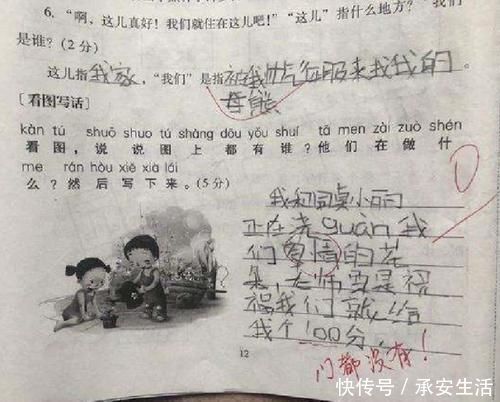 6. “啊，这儿真好！我们就住在这儿吧！”“这儿”指什么地方？“我们”
是谁？（2分）
这儿指我家，“我们”是指被我帅气征服来找我的。
母熊
[看图写话]
kàn tú shuō shuo tú shàng dōu yǒu shuí tā men zài zuò shén
看图，说说图上都有谁？他们在做什
me rán hòu xiě xià lái
么？然后写下来。（5分）
我和同桌小丽
正在浇guàn我
们爱情的花
朵，老师要是祝
福我们就给
我个100分。
门都没有！
12
快传号／承安生活